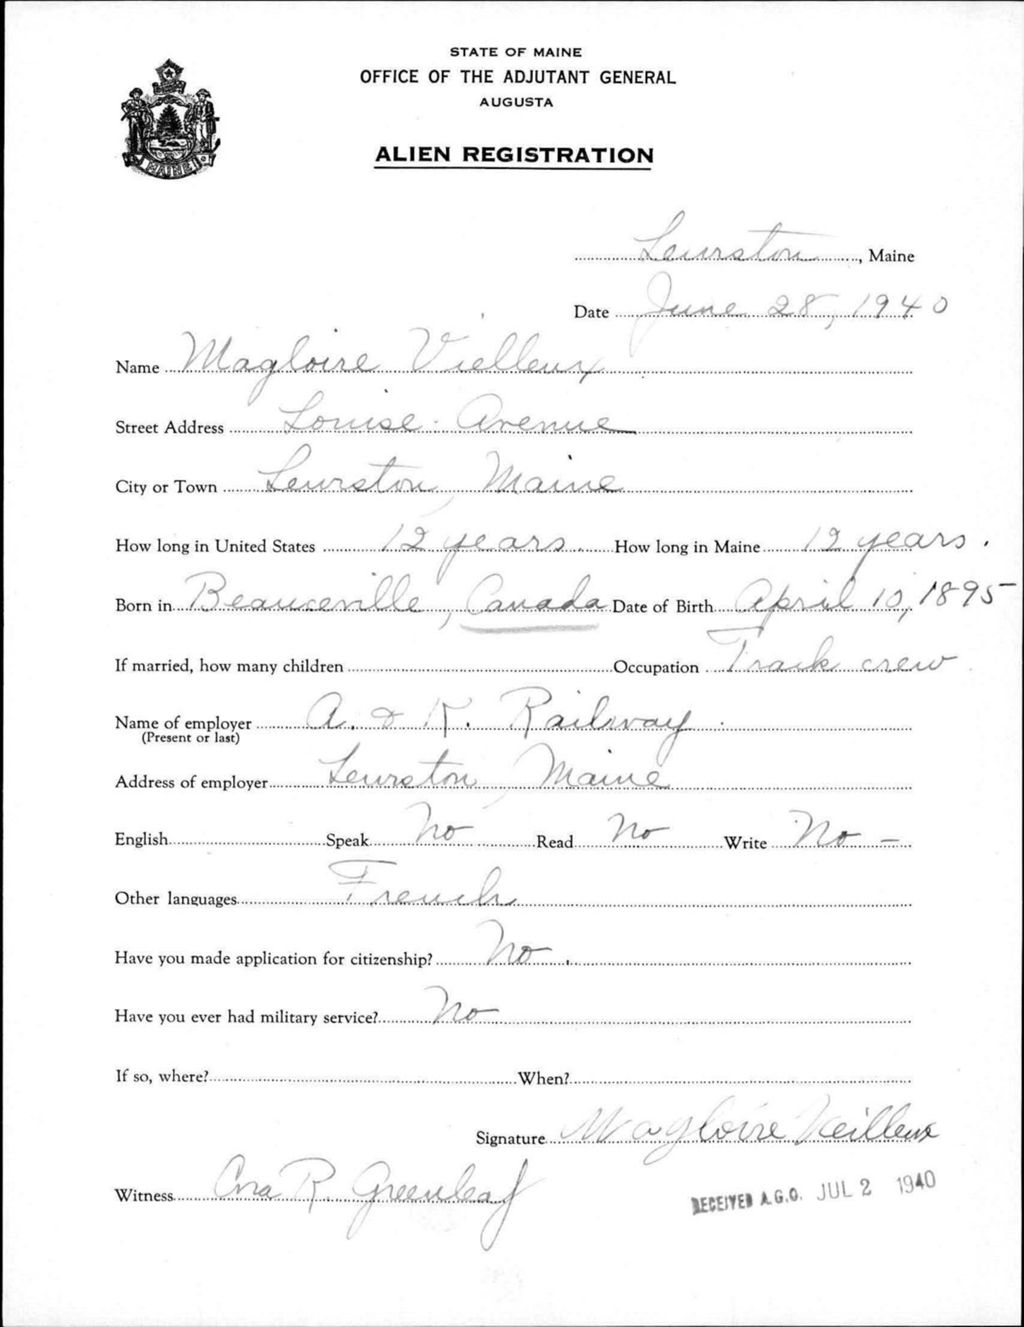 STATE OF MAINE
OFFICE OF THE ADJUTANT GENERAL
AUGUSTA
ALIEN REGISTRATION
MAINE
Lewiston, Maine
Date June 28, 1940
Name Magloire Vielleux
Street Address Louise Avenue
City or Town Lewiston, Maine
How long in United States 12 years How long in Maine 12 years.
Born in Beauceville, Canada Date of Birth April 10, 1895
If married, how many children Occupation Track crew
Name of employer A. & K. Railway.
(Present or last)
Address of employer Lewiston, Maine
English Speak No Read No Write No –
Other languages French
Have you made application for citizenship? No.
Have you ever had military service? No
If so, where? When?
Signature Magloire Veilleux
Witness R. Greenleaf
RECEIVED A.G.O. JUL 2 1940